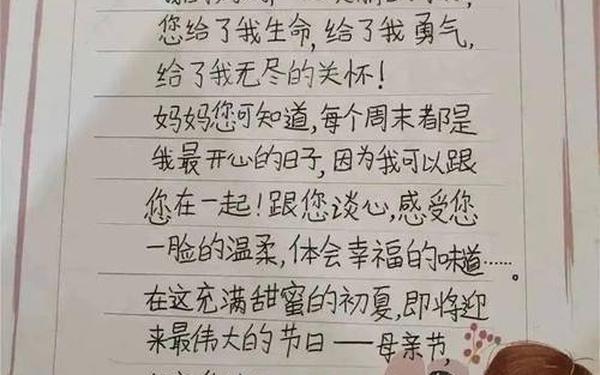 您给了我生命,给了我勇气,
给了我无尽的关怀!
妈妈您可知道,每个周末都是
我最开心的日子,因为我可以跟
您在一起!跟您谈心,感受您
一脸的温柔,体会幸福的味道……。
在这充满甜蜜的初夏,即将迎
来最伟大的节日——母亲节,